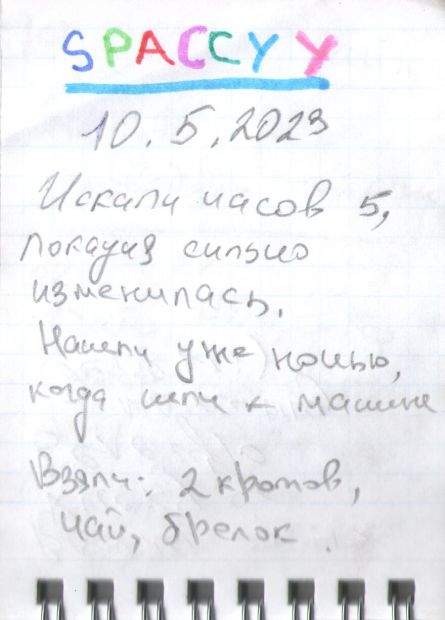 SPACCYY
10.5.2023
Искали часов 5,
локация сильно
изменилась.
Нашли уже ночью,
когда шли к машине
Взяли: 2 кротов,
чай, брелок.